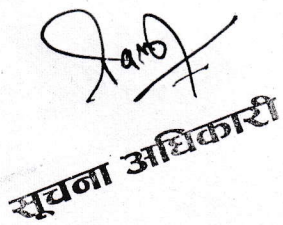 सूचना अधिकारी